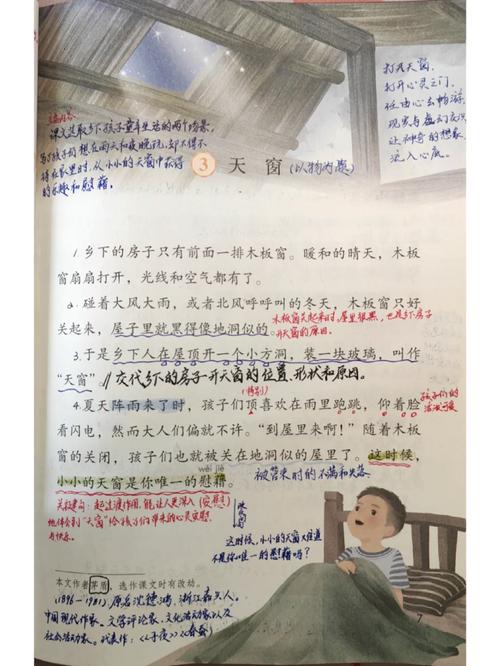 课文选取乡下孩子童年生活的两个场景,
写了孩子们想在雨天和夜晚玩,却不得不
待在家里时,从小小的天窗中获得
的乐趣和慰藉。
打开天窗,
打开心灵之门,
任由心去畅游
现实与虚幻交织
让神奇的想象
流入心底。
3 天 窗 (以物为题)
1.乡下的房子只有前面一排木板窗。暖和的晴天,木板
窗扇扇打开,光线和空气都有了。
2.碰着大风大雨,或者北风呼呼叫的冬天,木板窗只好
关起来,屋子里就黑得像地洞似的。
木板窗关起来时,屋里很黑,也是乡下房子
开天窗的原因。
3.于是乡下人在屋顶开一个小方洞,装一块玻璃,叫作
“天窗”。// 交代乡下的房子开天窗的位置、形状和原因。
(特别)
4.夏天阵雨来了时,孩子们顶喜欢在雨里跑跳,仰着脸
孩子们的
活泼可爱
看闪电,然而大人们偏就不许。“到屋里来啊!”随着木板
窗的关闭,孩子们也就被关在地洞似的屋里了。这时候,
wèi jiè
小小的天窗是你唯一的慰藉。
被管束时的不满和失落
关键句:起过渡作用,能让人更深入(安慰)
地体会到“天窗”给孩子们带来的心灵安慰
与快乐。
改为反问句
这时候,小小的天窗大难道
不是你唯一的慰藉吗?
本文作者茅盾,选作课文时有改动。
(1896-1981),原名沈德鸿,浙江嘉兴人。
中国现代作家、文学评论家、文化活动家以及
社会活动家。代表作:《子夜》《春蚕》
7